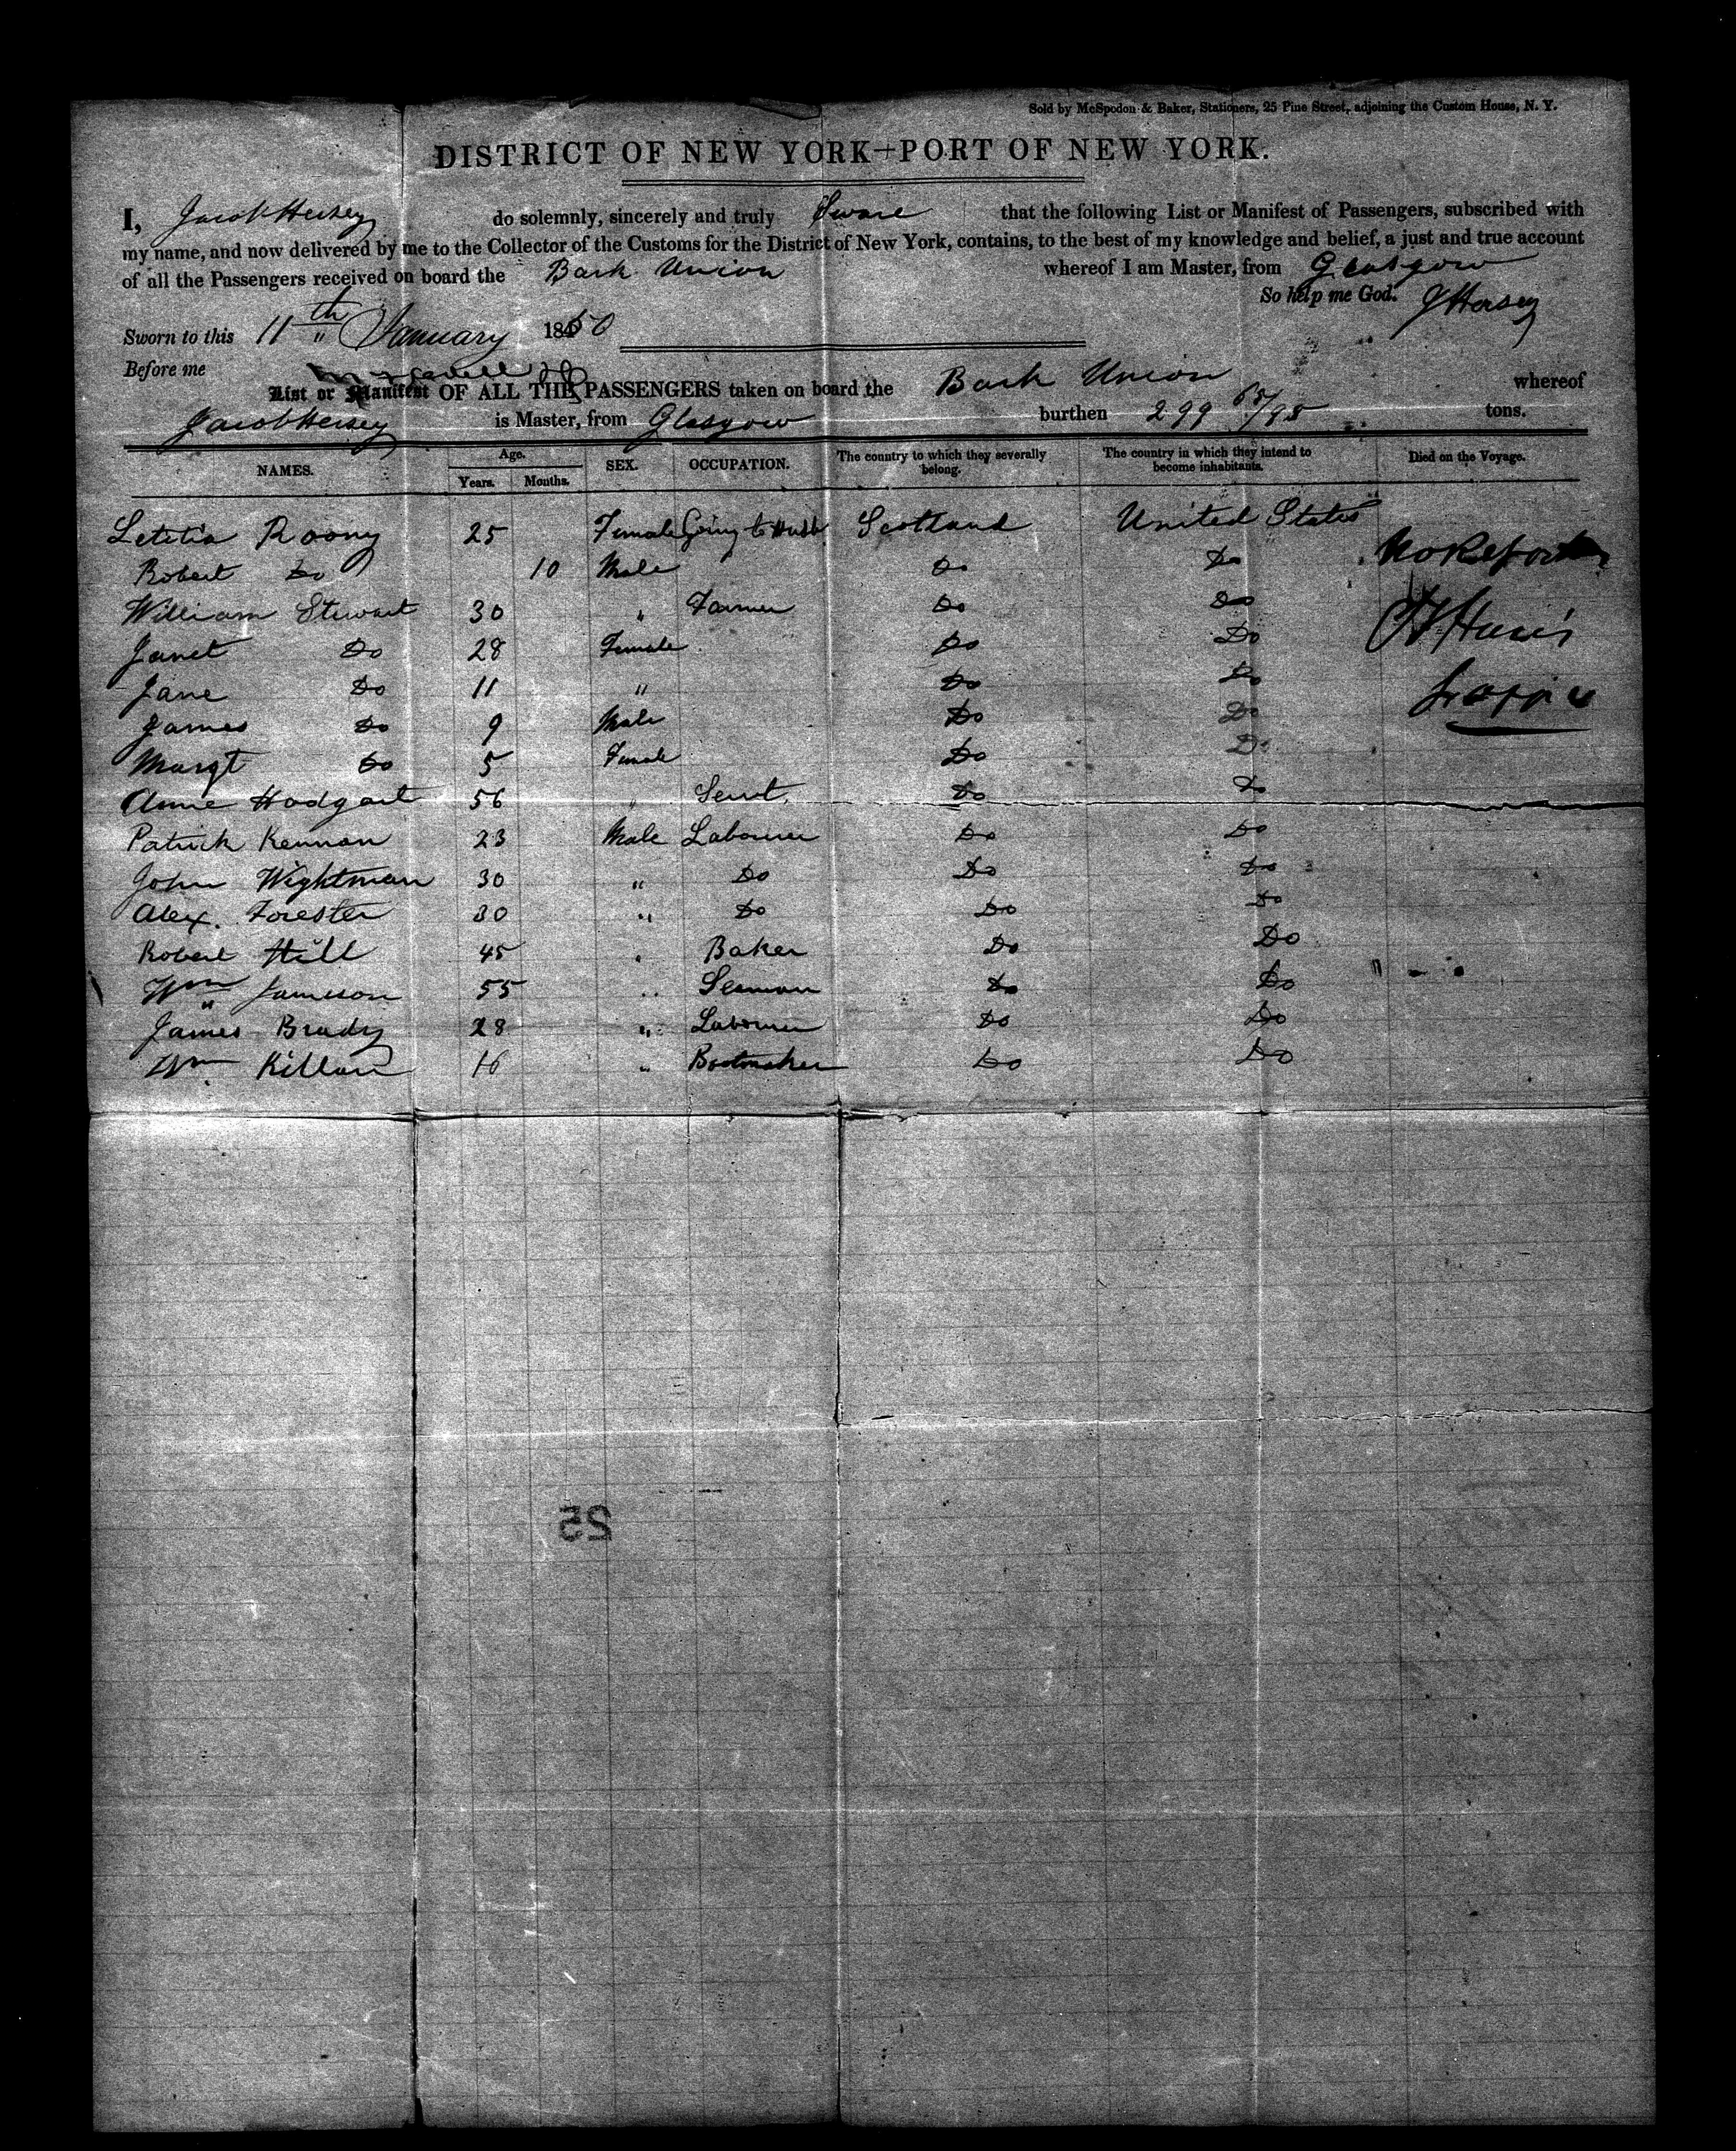 Sold by McSpedon & Baker, Stationers, 25 Pine Street, adjoining the Custom House, N. Y.
DISTRICT OF NEW YORK—PORT OF NEW YORK.
I, Jacob Hersey do solemnly, sincerely and truly Sware that the following List or Manifest of Passengers, subscribed with
my name, and now delivered by me to the Collector of the Customs for the District of New York, contains, to the best of my knowledge and belief, a just and true account
of all the Passengers received on board the Bark Union whereof I am Master, from Glasgow
So help me God. J Hersey
Sworn to this 11th January 1850
Before me
List or Manifest OF ALL THE PASSENGERS taken on board the Bark Union whereof
Jacob Hersey is Master, from Glasgow burthen 299 68/95 tons.
NAMES. Age. Years. Months. SEX. OCCUPATION. The country to which they severally belong. The country in which they intend to become inhabitants. Died on the Voyage.
Letitia Roony 25 Female Going to Husb Scotland United States
Robert Do 10 Male Do Do
William Stewart 30 " Farmer Do Do
Janet Do 28 Female Do Do
Jane Do 11 " Do Do
James Do 9 Male Do Do
Margt Do 5 Female Do Do
Anne Hodgart 56 " Servt. Do Do
Patrick Kennan 23 Male Labourer Do Do
John Wightman 30 " Do Do Do
Alex. Forester 30 " Do Do Do
Robert Hill 45 " Baker Do Do
Wm Jameson 55 " Seaman Do Do
James Brady 28 " Labourer Do Do
Wm Killan 16 " Bootmaker Do Do
25